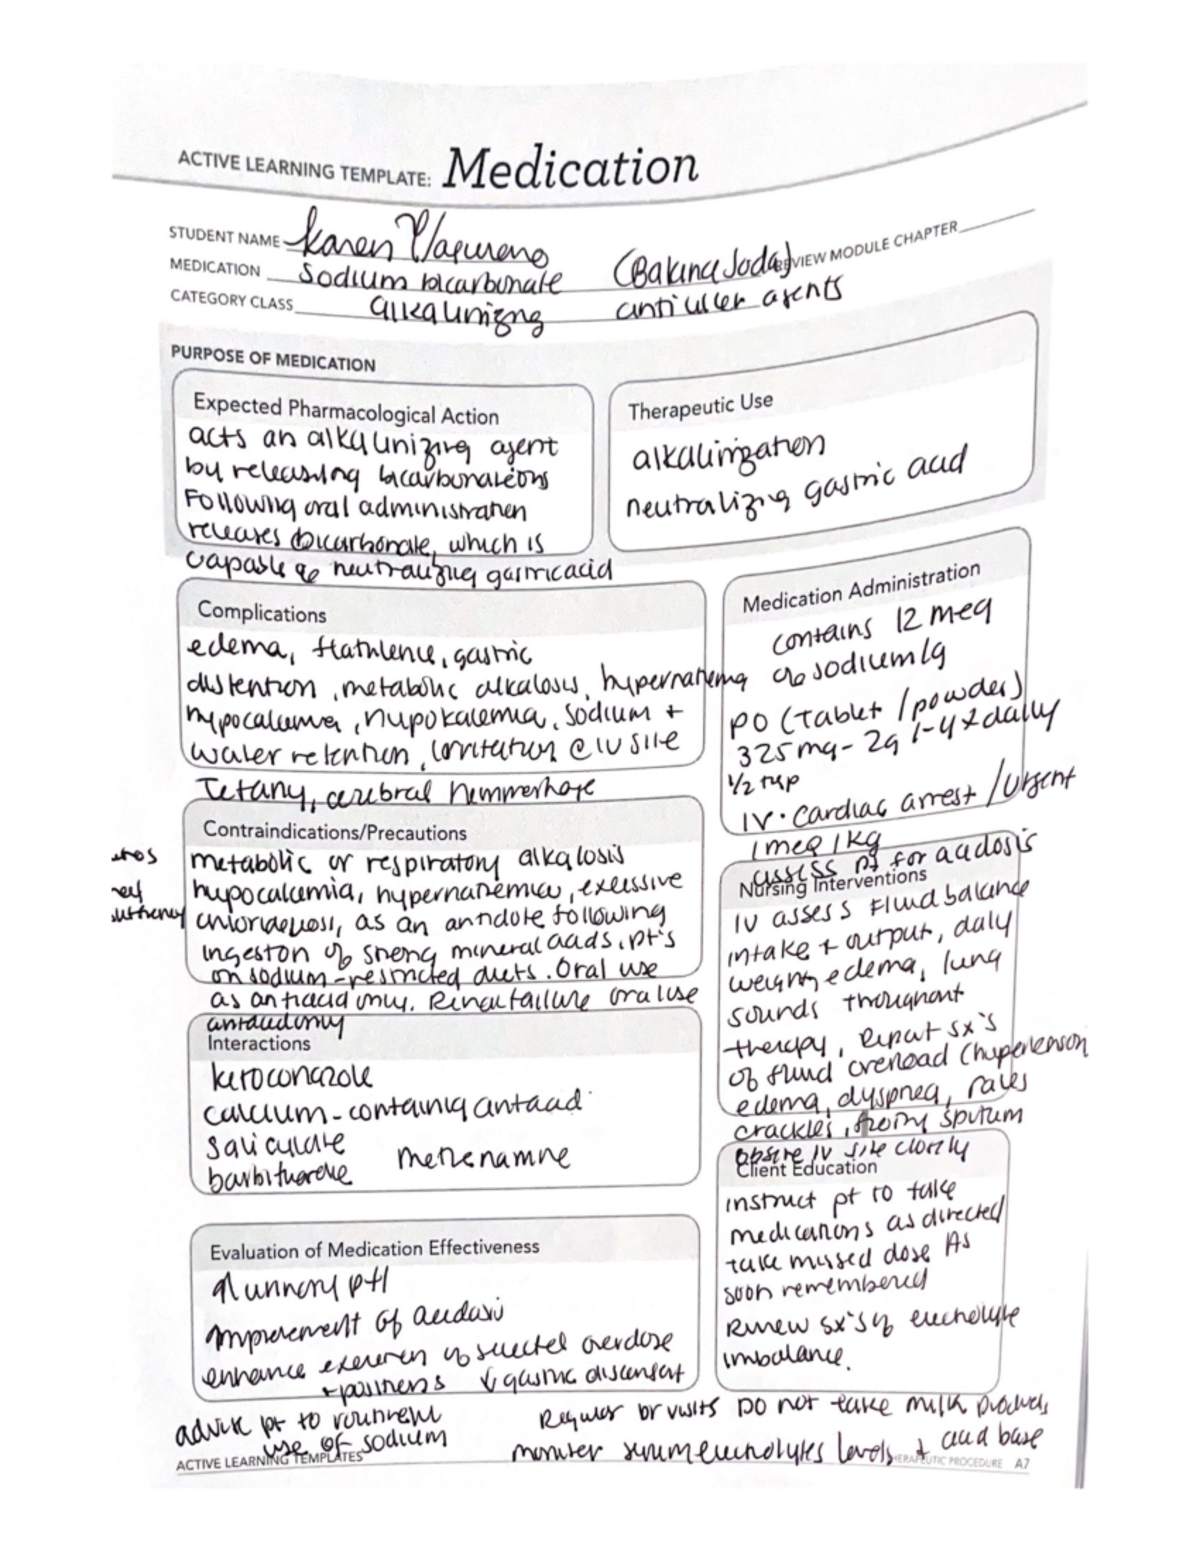 ACTIVE LEARNING TEMPLATE: Medication
STUDENT NAME Karen
REVIEW MODULE CHAPTER
MEDICATION sodium bicarbonate (Baking Soda)
CATEGORY CLASS alkalinizing antiulcer agents
PURPOSE OF MEDICATION
Expected Pharmacological Action
acts an alkalinizing agent
by releasing bicarbonate ions
Following oral administration
releases bicarbonate, which is
capable of neutralizing gastric acid
Therapeutic Use
alkalinization
neutralizing gastric acid
Complications
edema, flatulence, gastric
distention, metabolic alkalosis, hypernatremia
hypocalcemia, hypokalemia, sodium +
water retention, irritation @ IV site
Tetany, cerebral hemmorhage
Medication Administration
contains 12 meq
of sodium/g
PO (Tablet / powder)
325 mg - 2g 1-4 x daily
1/2 tsp
IV. Cardiac arrest / Urgent
1 meq / kg
assess pt for acidosis
Contraindications/Precautions
metabolic or respiratory alkalosis
hypocalcemia, hypernatremia, excessive
chloride loss, as an antidote following
ingestion of strong mineral acids, pt's
on sodium-restricted diets. Oral use
as antiacid only. Renal failure oral use
antacid only
Nursing Interventions
IV assess Fluid balance
intake + output, daily
weight, edema, lung
sounds throughout
therapy, Report sx's
of fluid overload (hypertension
edema, dyspnea, rales
crackles, frothy sputum
IV site closely
Interactions
ketoconazole
calcium-containing antacid
salicylate
barbiturate methenamine
Client Education
instruct pt to take
medications as directed
take missed dose As
soon remembered
Review sx's of electrolyte
imbalance.
Evaluation of Medication Effectiveness
↑ urinary pH
improvement of acidosis
enhance excretion of selected overdose
+ poisnens ↓ gastric discomfort
advise pt to
use of sodium
Regular Dr visits Do not take milk products
monitor serum electrolytes levels + acid base
ACTIVE LEARNING TEMPLATES
THERAPEUTIC PROCEDURE A7